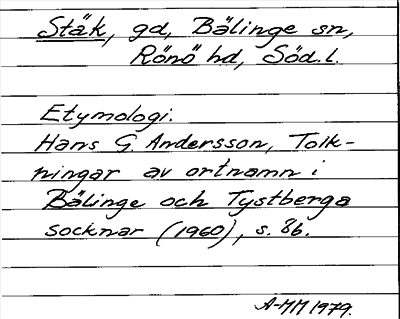 Stäk, gd, Bälinge sn,
Rönö hd, Söd.l.
Etymologi.
Hans G. Andersson, Tolk-
ningar av ortnamn i
Bälinge och Tystberga
socknar (1960), s. 8b.
A-MM 1979.